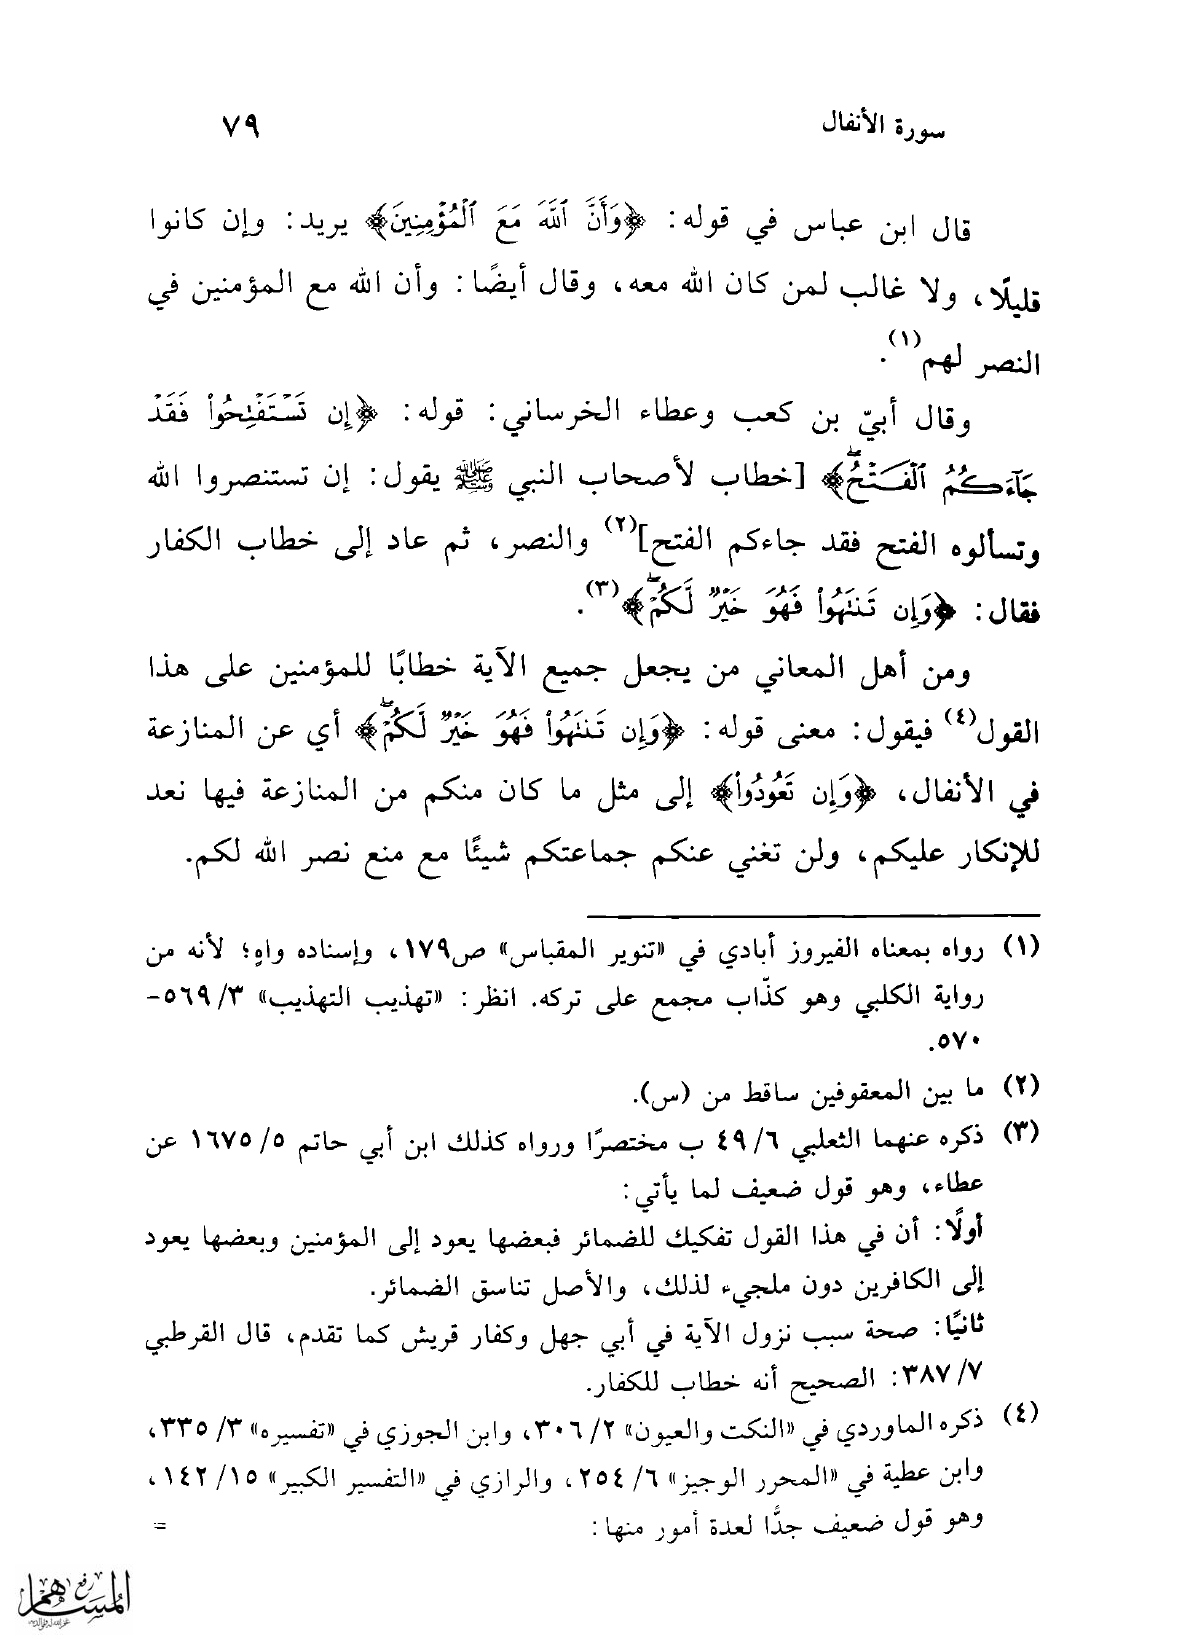 سورة الأنفال ٧٩
قال ابن عباس في قوله: ﴿وَأَنَّ ٱللَّهَ مَعَ ٱلْمُؤْمِنِينَ﴾ يريد: وإن كانوا
قليلًا، ولا غالب لمن كان الله معه، وقال أيضًا: وأن الله مع المؤمنين في
النصر لهم(١).
وقال أبيّ بن كعب وعطاء الخرساني: قوله: ﴿إِن تَسْتَفْتِحُوا۟ فَقَدْ
جَآءَكُمُ ٱلْفَتْحُ ۖ﴾ [خطاب لأصحاب النبي ﷺ يقول: إن تستنصروا الله
وتسألوه الفتح فقد جاءكم الفتح](٢) والنصر، ثم عاد إلى خطاب الكفار
فقال: ﴿وَإِن تَنتَهُوا۟ فَهُوَ خَيْرٌ لَّكُمْ ۖ﴾(٣).
ومن أهل المعاني من يجعل جميع الآية خطابًا للمؤمنين على هذا
القول(٤) فيقول: معنى قوله: ﴿وَإِن تَنتَهُوا۟ فَهُوَ خَيْرٌ لَّكُمْ ۖ﴾ أي عن المنازعة
في الأنفال، ﴿وَإِن تَعُودُوا۟﴾ إلى مثل ما كان منكم من المنازعة فيها نعد
للإنكار عليكم، ولن تغني عنكم جماعتكم شيئًا مع منع نصر الله لكم.
(١) رواه بمعناه الفيروز أبادي في «تنوير المقباس» ص١٧٩، وإسناده واهٍ؛ لأنه من
رواية الكلبي وهو كذّاب مجمع على تركه. انظر: «تهذيب التهذيب» ٣/ ٥٦٩-
٥٧٠.
(٢) ما بين المعقوفين ساقط من (س).
(٣) ذكره عنهما الثعلبي ٦/ ٤٩ ب مختصرًا ورواه كذلك ابن أبي حاتم ٥/ ١٦٧٥ عن
عطاء، وهو قول ضعيف لما يأتي:
أولًا: أن في هذا القول تفكيك للضمائر فبعضها يعود إلى المؤمنين وبعضها يعود
إلى الكافرين دون ملجيء لذلك، والأصل تناسق الضمائر.
ثانيًا: صحة سبب نزول الآية في أبي جهل وكفار قريش كما تقدم، قال القرطبي
٧/ ٣٨٧: الصحيح أنه خطاب للكفار.
(٤) ذكره الماوردي في «النكت والعيون» ٢/ ٣٠٦، وابن الجوزي في «تفسيره» ٣/ ٣٣٥،
وابن عطية في «المحرر الوجيز» ٦/ ٢٥٤، والرازي في «التفسير الكبير» ١٥/ ١٤٢،
وهو قول ضعيف جدًّا لعدة أمور منها: =